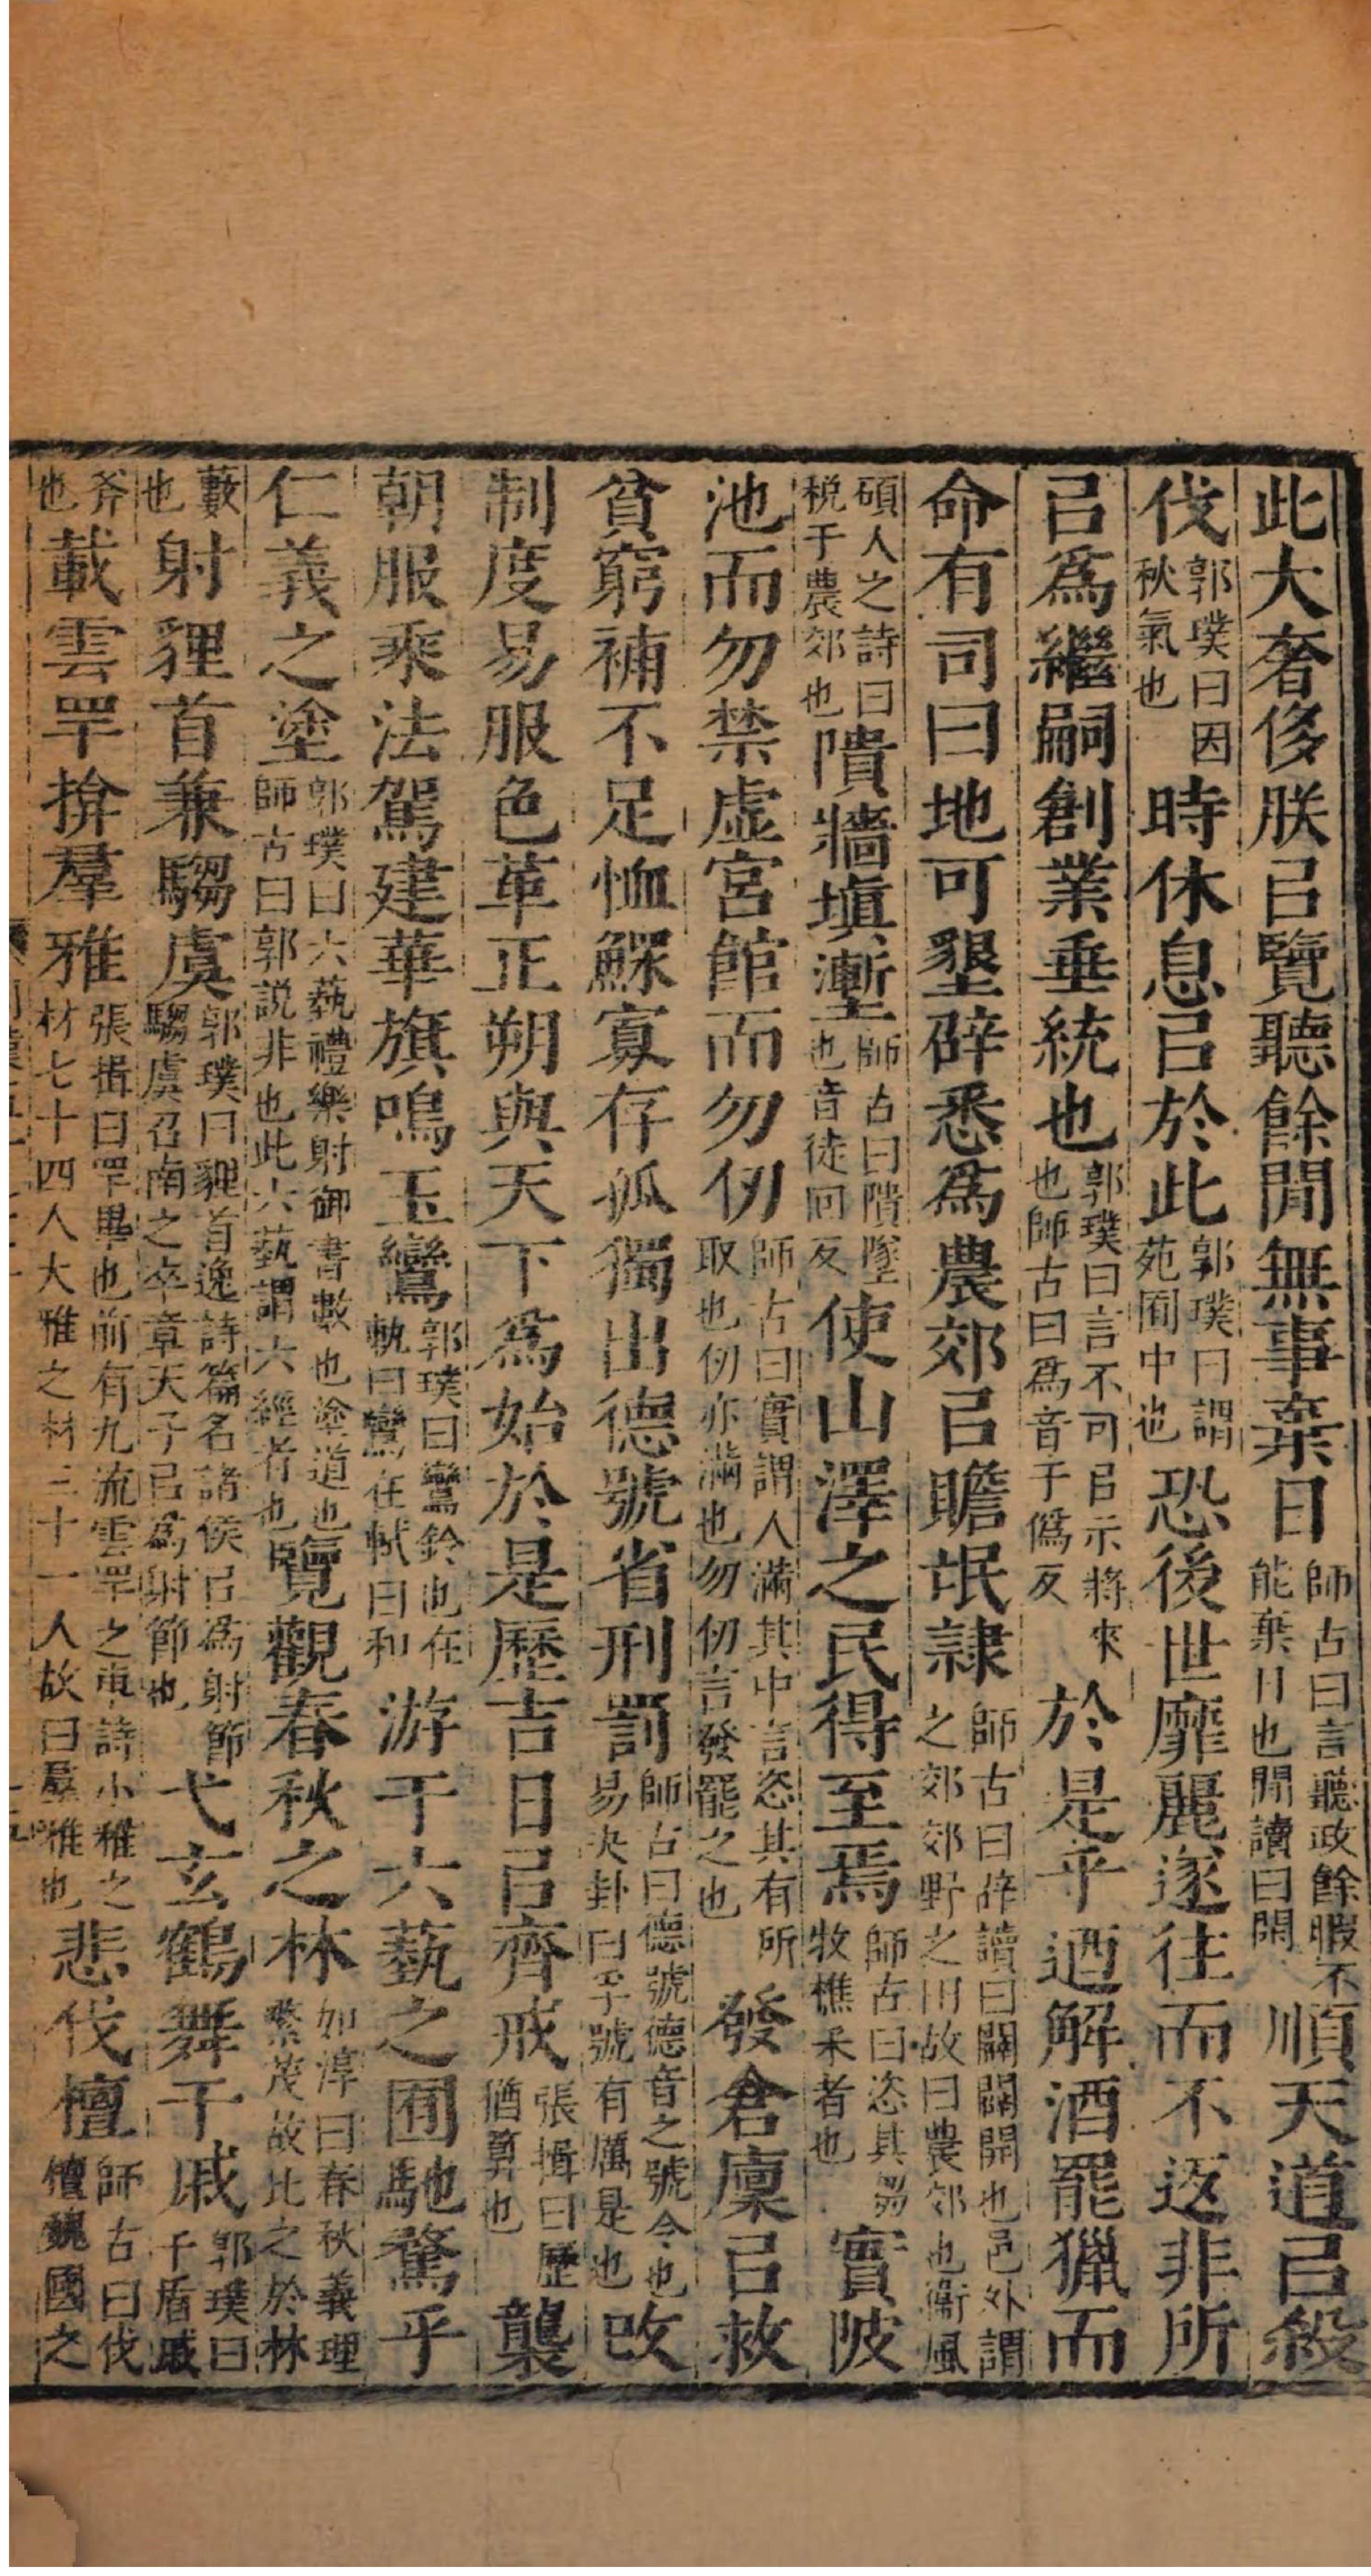 此大奢侈朕㠯覽聽餘閒無事棄日師古曰言聽政餘暇不能棄日也閒讀曰閑順天道㠯殺
伐郭璞曰因秋氣也時休息㠯於此郭璞曰謂苑囿中也恐後世靡麗遂往而不返非所
㠯爲繼嗣創業垂統也郭璞曰言不可㠯示將來也師古曰爲音于僞反於是乎迺解酒罷獵而
命有司曰地可墾辟悉爲農郊㠯贍氓隸師古曰辟讀曰闢闢開也邑外謂之郊郊野之田故曰農郊也衞風
碩人之詩曰稅于農郊也隤牆塡壍師古曰隤墜也音徒回反使山澤之民得至焉師古曰恣其芻牧樵采者也實陂
池而勿禁虛宮館而勿仞師古曰實謂人滿其中言恣其有所取也仞亦滿也勿仞言發罷之也發倉廩㠯救
貧窮補不足恤鰥寡存孤獨出德號省刑罰師古曰德號德音之號令也易夬卦曰孚號有厲是也改
制度易服色革正朔與天下爲始於是歷吉日㠯齊戒張揖曰歷猶算也襲
朝服乘法駕建華旗鳴玉鸞郭璞曰鸞鈴也在軌曰鸞在軾曰和游于六藝之囿馳騖乎
仁義之塗郭璞曰六藝禮樂射御書數也塗道也師古曰郭說非也此六藝謂六經者也覽觀春秋之林如淳曰春秋義理繁茂故比之於林
藪也射貍首兼騶虞郭璞曰貍首逸詩篇名諸侯㠯爲射節騶虞召南之卒章天子㠯爲射節也弋玄鶴舞干戚郭璞曰干盾戚
斧也載雲䍐揜羣雅張揖曰䍐畢也前有九流雲䍐之車詩小雅之材七十四人大雅之材三十一人故曰羣雅也悲伐檀師古曰伐檀魏國之